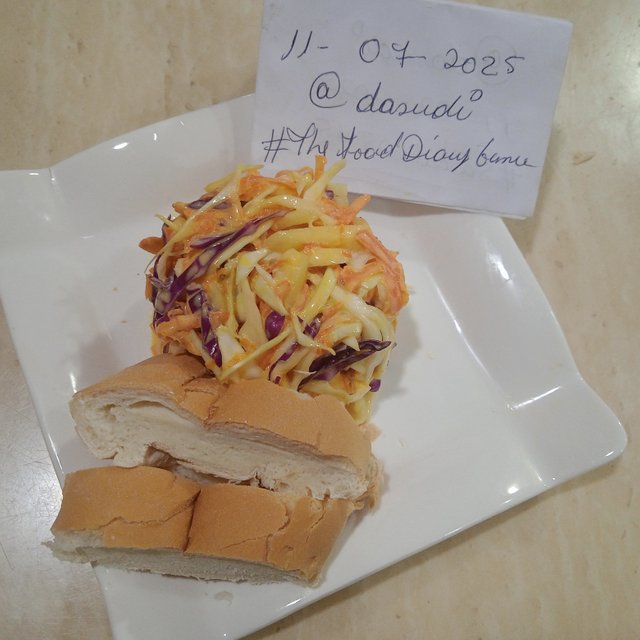 11- 07 2025
@dasudi
#The Food Diary bunie